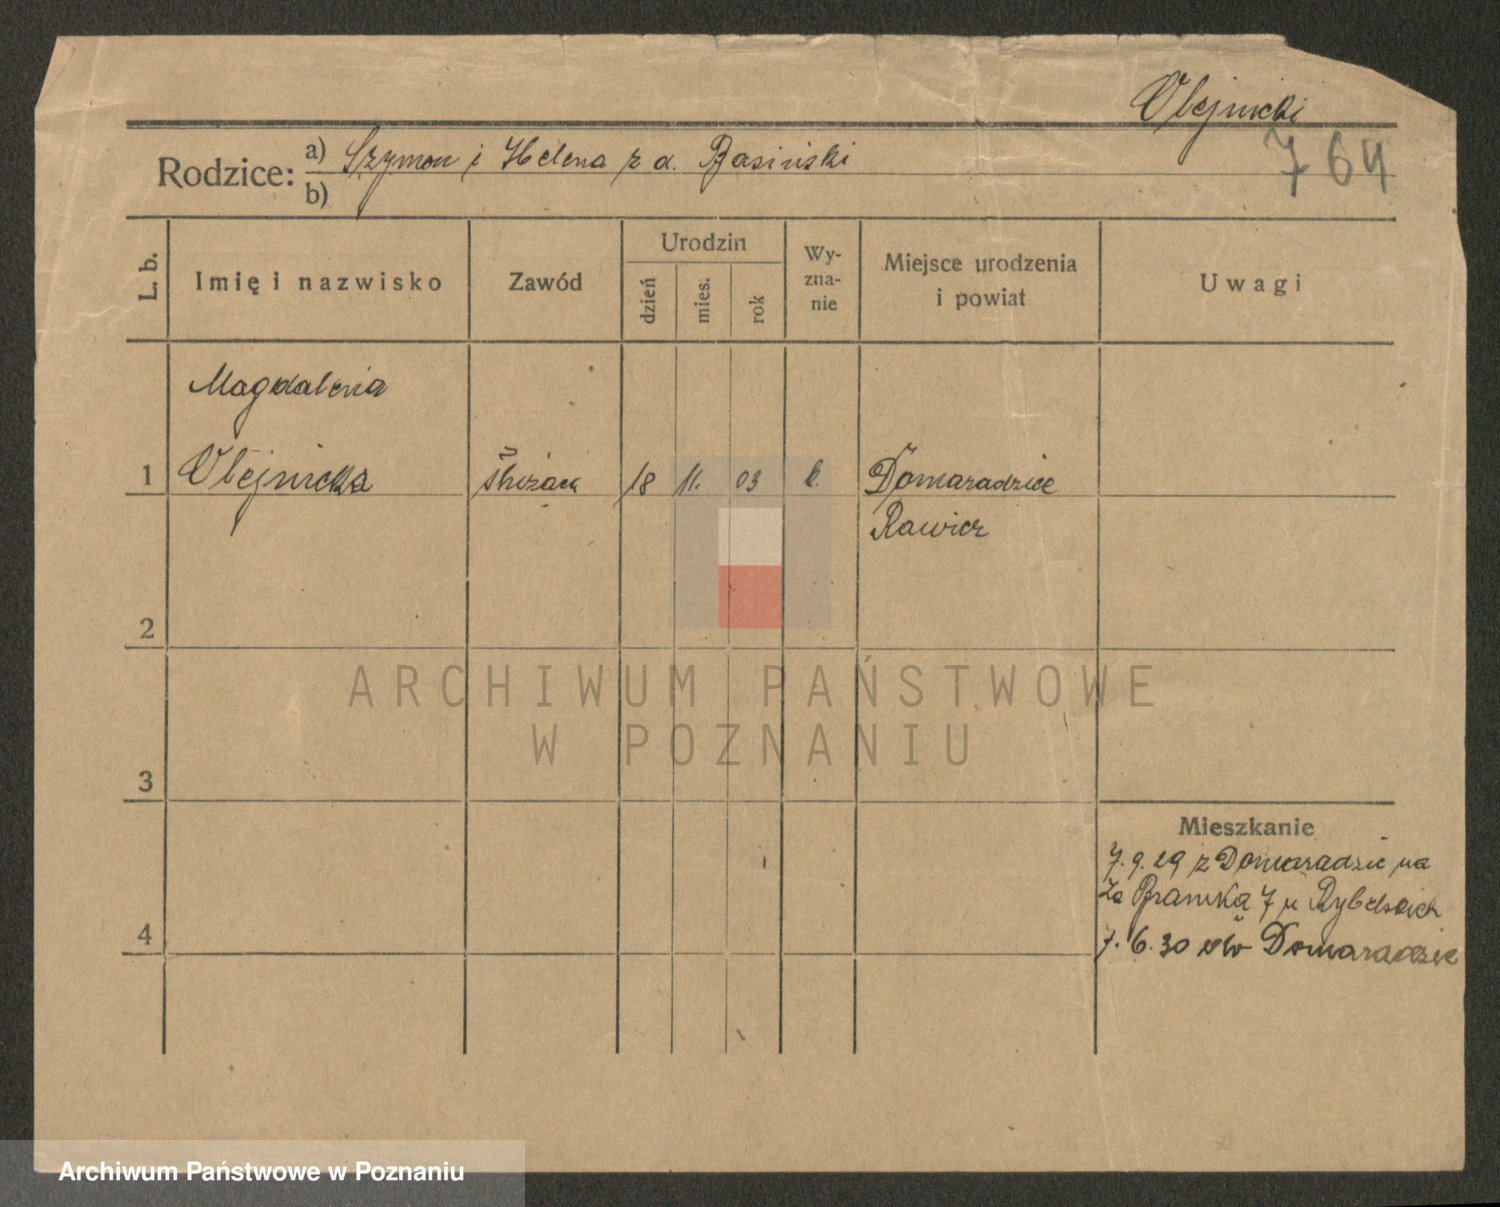 Olejnicki
764
Rodzice: a) Szymon i Helena z d. Basiński
b)
L. b.
Imię i nazwisko
Zawód
Urodzin
dzień
mies.
rok
Wy-
zna-
nie
Miejsce urodzenia
i powiat
Uwagi
Magdalena
1 Olejnicka służąca 18 11. 03 k. Domaradzice
Rawicz
2
3
4
Mieszkanie
7.9.29 z Domaradzic na
Za Bramką 7 u
7.6.30 do Domaradzic
ARCHIWUM PAŃSTWOWE
W POZNANIU
Archiwum Państwowe w Poznaniu